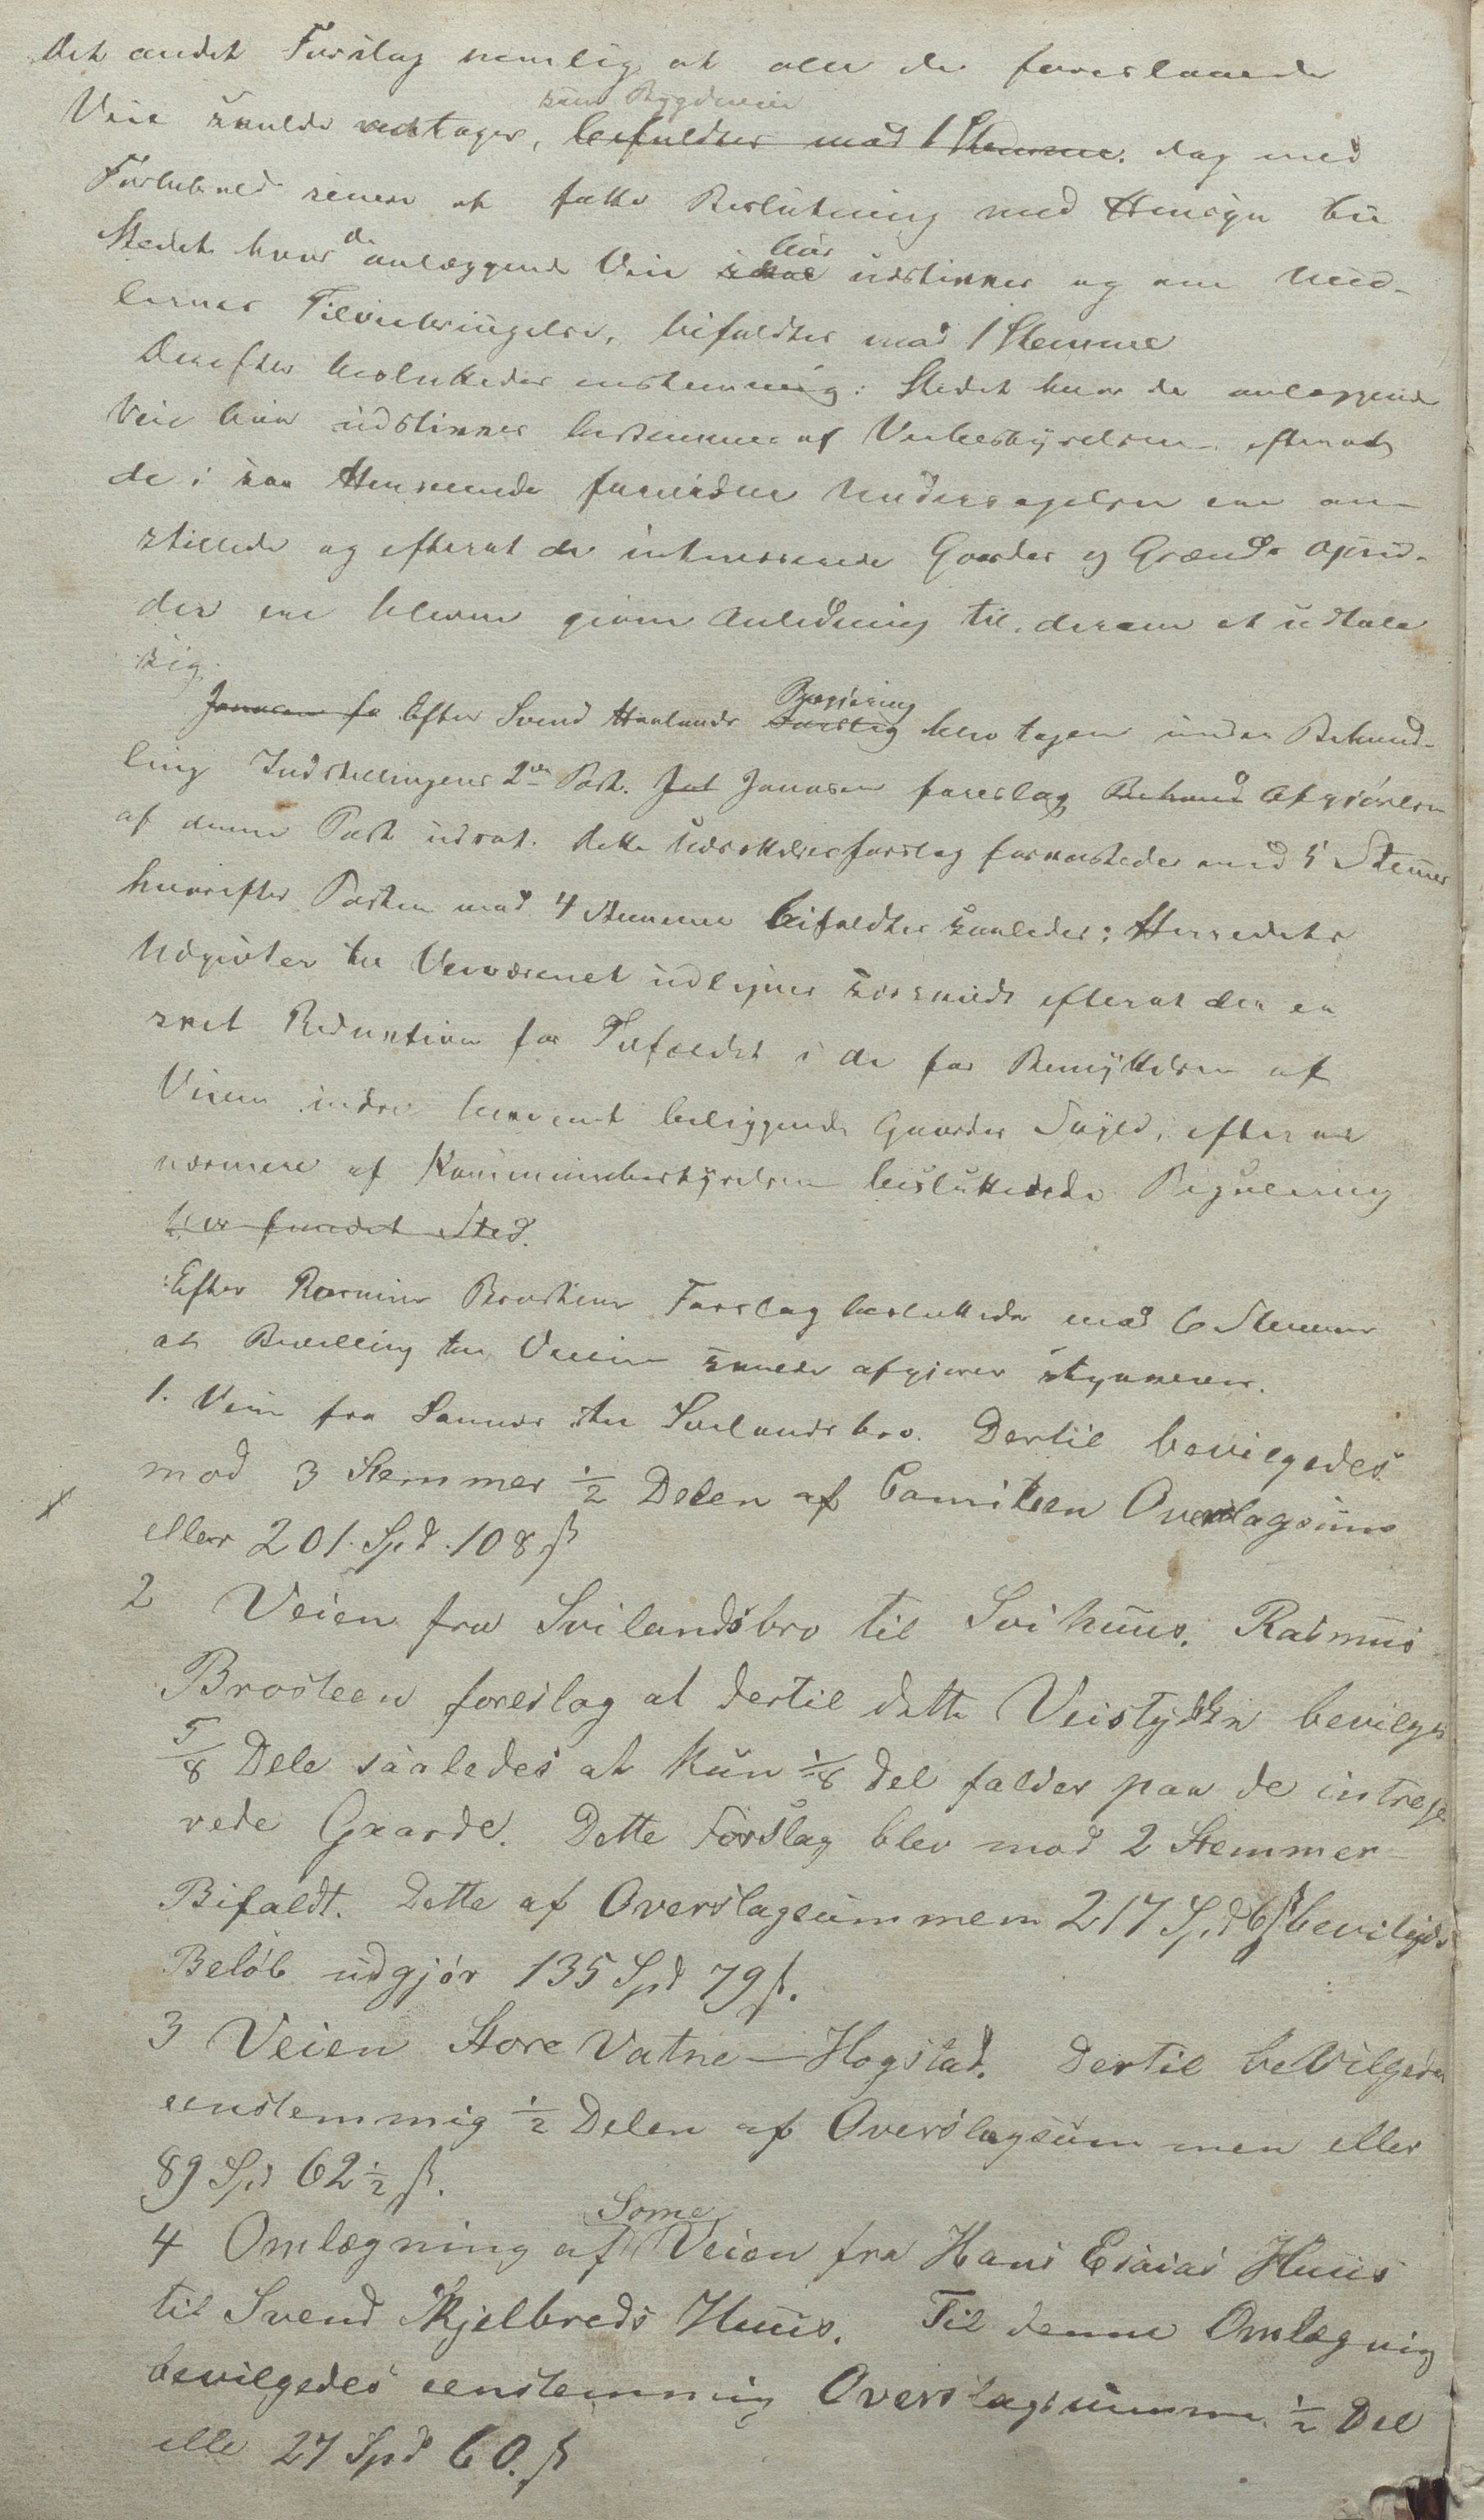 Det andet Forslag nemlig at alle de foreslaaede
som Bygdeveie
Veie skulde vedtages, bifaldtes mod 1 Stemme. dog med
Forbehold senere at fatte Beslutning med Hensyn til
de bør
Stedet hvor anlæggende Veie skal udstikkes og om Mid-
lernes Tilveiebringelse, bifaldtes mod 1 Stemme
Derefter besluttedes enstemmig: Stedet hvor de anlæggende
Veie bør udstikkes bestemmes af Veibestyrelsen efterat
de i saa Henseende fornødne Undersøgelser ere an-
stillede og efterat de interesserede Gaarder og Grænds Opsid-
der ere blevne given Anledning til derom at udtale
sig.
Begjæring
Jonasen fo Efter Svend Haalands Forslag blev tagen under Behand-
ling Indstillingens 2den Post. Jonasen foreslog Behand Afgjørelsen
af denne Post udsat. Dette Udsættelsesforslag forkastedes med 5 Stemmer
hvorefter Posten mod 4 Stemmer bifaldtes saaledes: Herredets
Udgivter til Veivæsenet udlignes efterat der er
skeet Reduktion for Tilfældet i de for Benyttelsen af
Veiene beliggende Gaardes Skyld, efter en
nærmere af Kommunebestyrelsen besluttede Regulering
har fundet Sted.
Efter Rasmus Brosteens Forslag besluttedes mod 6 Stemmer
at Bevilling til Veiene skulde afgjøres stykkevis.
1. Veien fra Sannes til Svilandsbro. Dertil bevilgedes
mod 3 Stemmer 1/2 Delen af Comiteen Overslagsum
eller 201 Spd. 108 ß
2 Veien fra Svilandsbro til Svihuus. Rasmus
Brosteen foreslog at dertil dette Veistykke bevilges
5/8 Dele saaledes at kun 1/8 del falder paa de intrese
rede Gaarde. Dette Forslag blev mod 2 Stemmer
Bifaldt. Dette af Overslagsummem 217 Spd 6 ß bevilgede
Beløb udgjør 135 Spd 79 ß.
3 Veien Store Vatne — Hogstad. Dertil bevilgedes
eenstemmig 1/2 Delen af Overslagsummen eller
89 Spd 62 1/2 ß.
Some
4 Omlægning af Veien fra Hans Esaias Huus
til Svend Skjelbreds Huus. Til denne Omlægning
bevilgedes eenstemmig Overslagsumme 1/2 Del
elle 27 Spd 60. ß